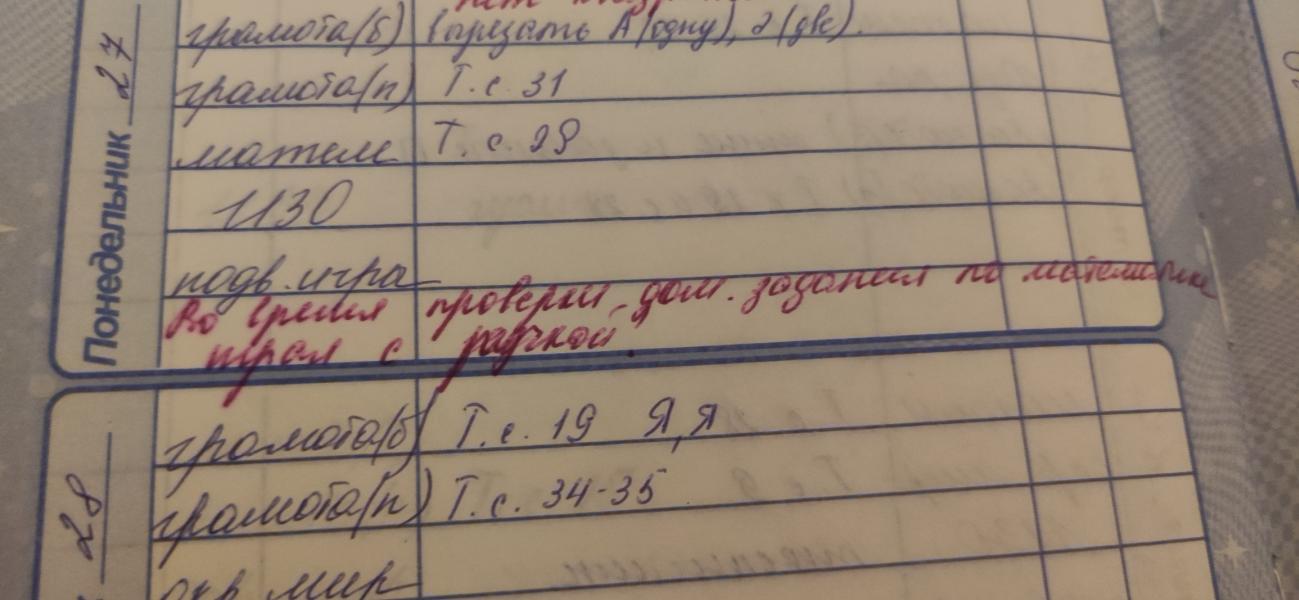 нет
грамота(б) (вырезать А(одну), 2(две).
грамота(п) Т.с. 31
матем Т.с. 29
ИЗО
подв. игра
Во время проверки дом. задания по математике
играл с ручкой.
Понедельник 27
грамота(б) Т.с. 19 Я,я
грамота(п) Т.с. 34-35
окр. мир
28